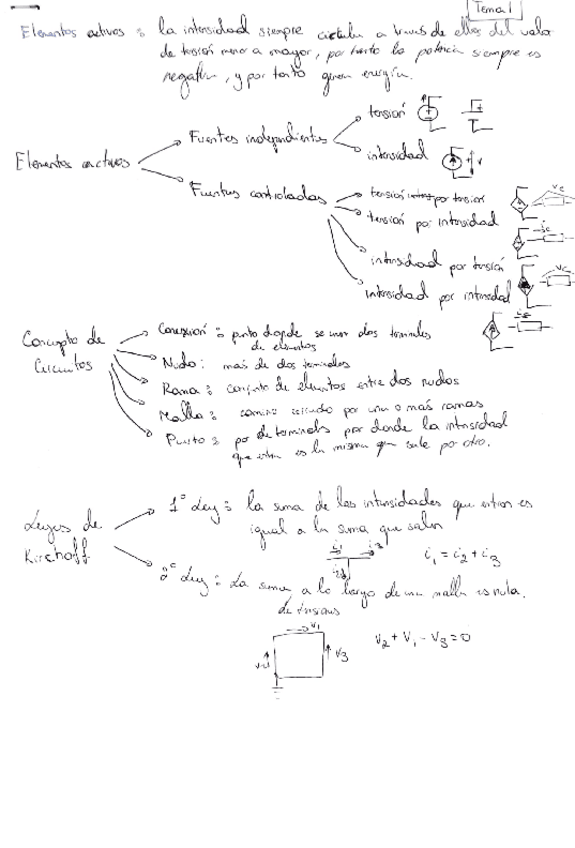 Tema 1
Elementos activos: la intensidad siempre circula a través de ellos del valor
de tensión menor a mayor, por tanto la potencia siempre es
negativa, y por tanto generan energía.
Elementos activos
Fuentes independientes
tensión
intensidad
v
Fuentes controladas
tensión por tensión
tensión por intensidad
intensidad por tensión
intensidad por intensidad
Concepto de
Circuitos
Conexión: punto donde se unen dos terminales
de elementos
Nudo: más de dos terminales
Rama: conjunto de elementos entre dos nudos
Malla: camino cerrado por una o más ramas
Puerto: par de terminales por donde la intensidad
que entra es la misma que sale por otro.
Leyes de
Kirchoff
1ª Ley: la suma de las intensidades que entran es
igual a la suma que salen
i1 i3
i2
i1 = i2 + i3
2ª Ley: La suma a lo largo de una malla es nula.
de tensiones
V1
V2
V3
V2 + V1 - V3 = 0